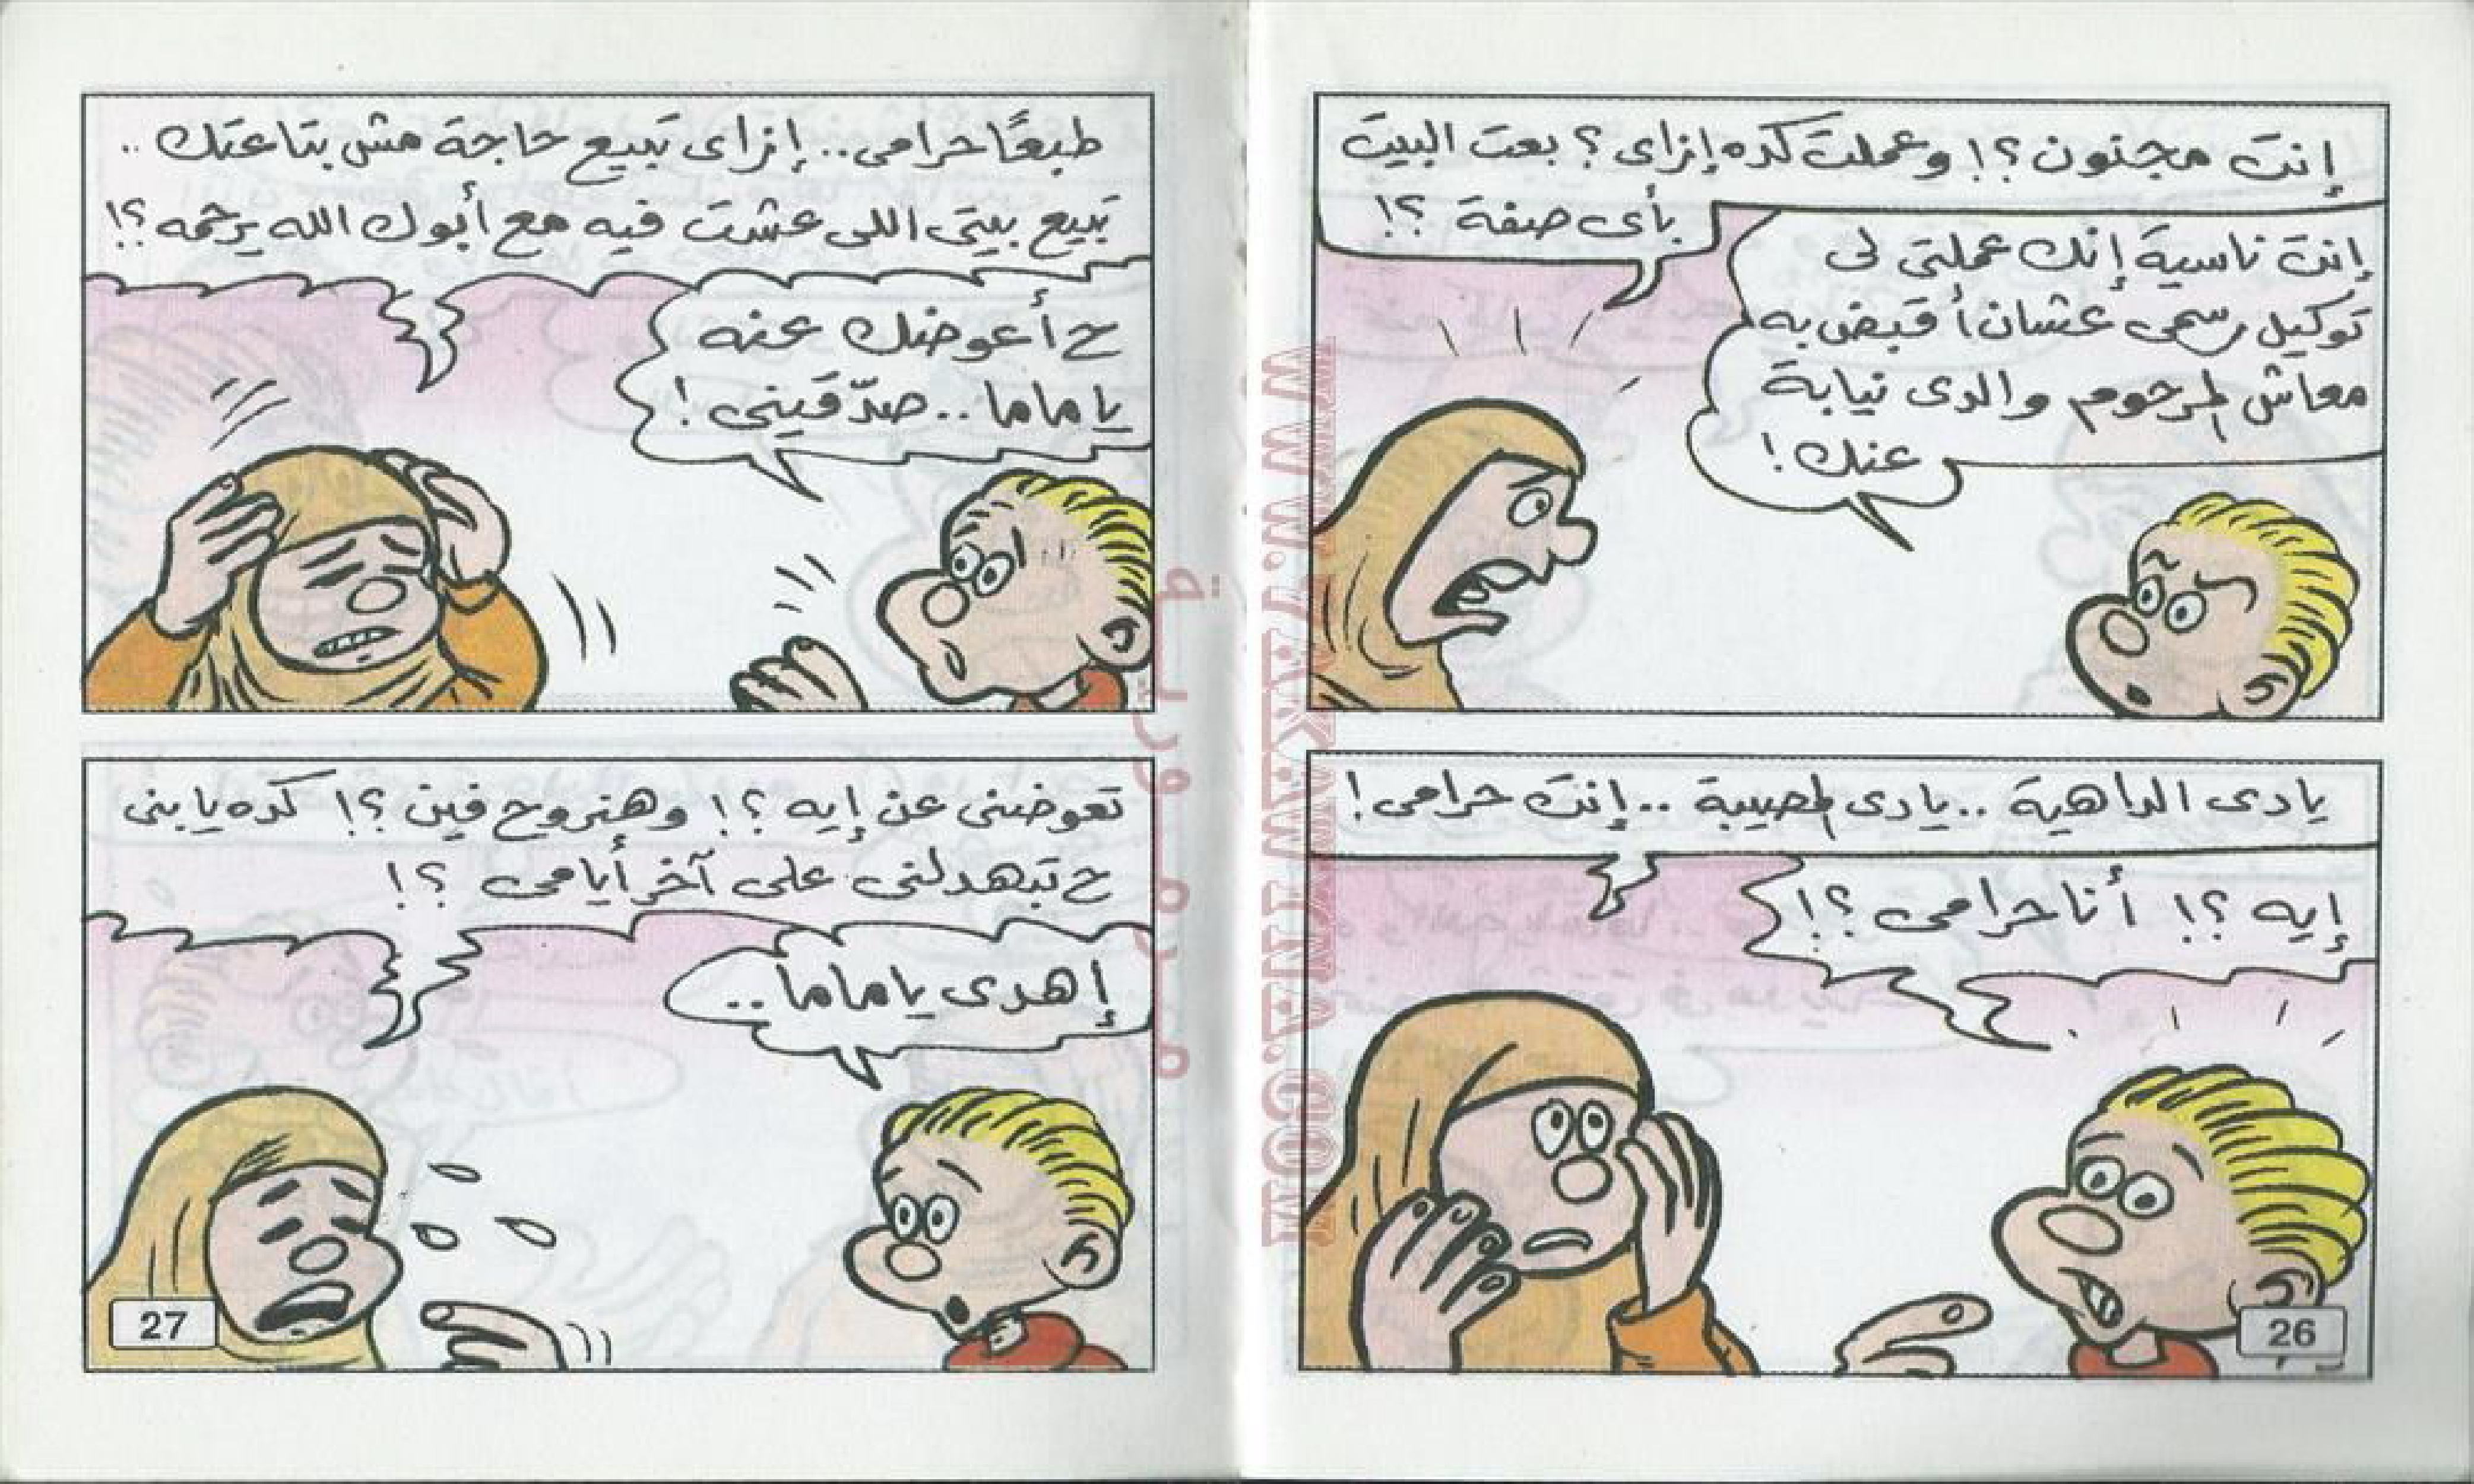 إنت مجنون؟! وعملت كده إزاى؟ بعت البيت
بأى صفة؟!
إنتى ناسية إنك عملتى لى
توكيل رسمى عشان أقبض به
معاش المرحوم والدى نيابة
عنك!
يادى الداهية.. يادى المصيبة.. إنت حرامى!
إيه؟! أنا حرامى؟!
26
طبعًا حرامى.. إزاى تبيع حاجة مش بتاعتك..
تبيع بيتى اللى عشت فيه مع أبوك الله يرحمه؟!
ح أعوضك عنه
يا ماما.. صدّقينى!
تعوضنى عن إيه؟! وهنروح فين؟! كده يا بنى
ح تبهدلنى على آخر أيامى؟!
إهدى يا ماما..
27